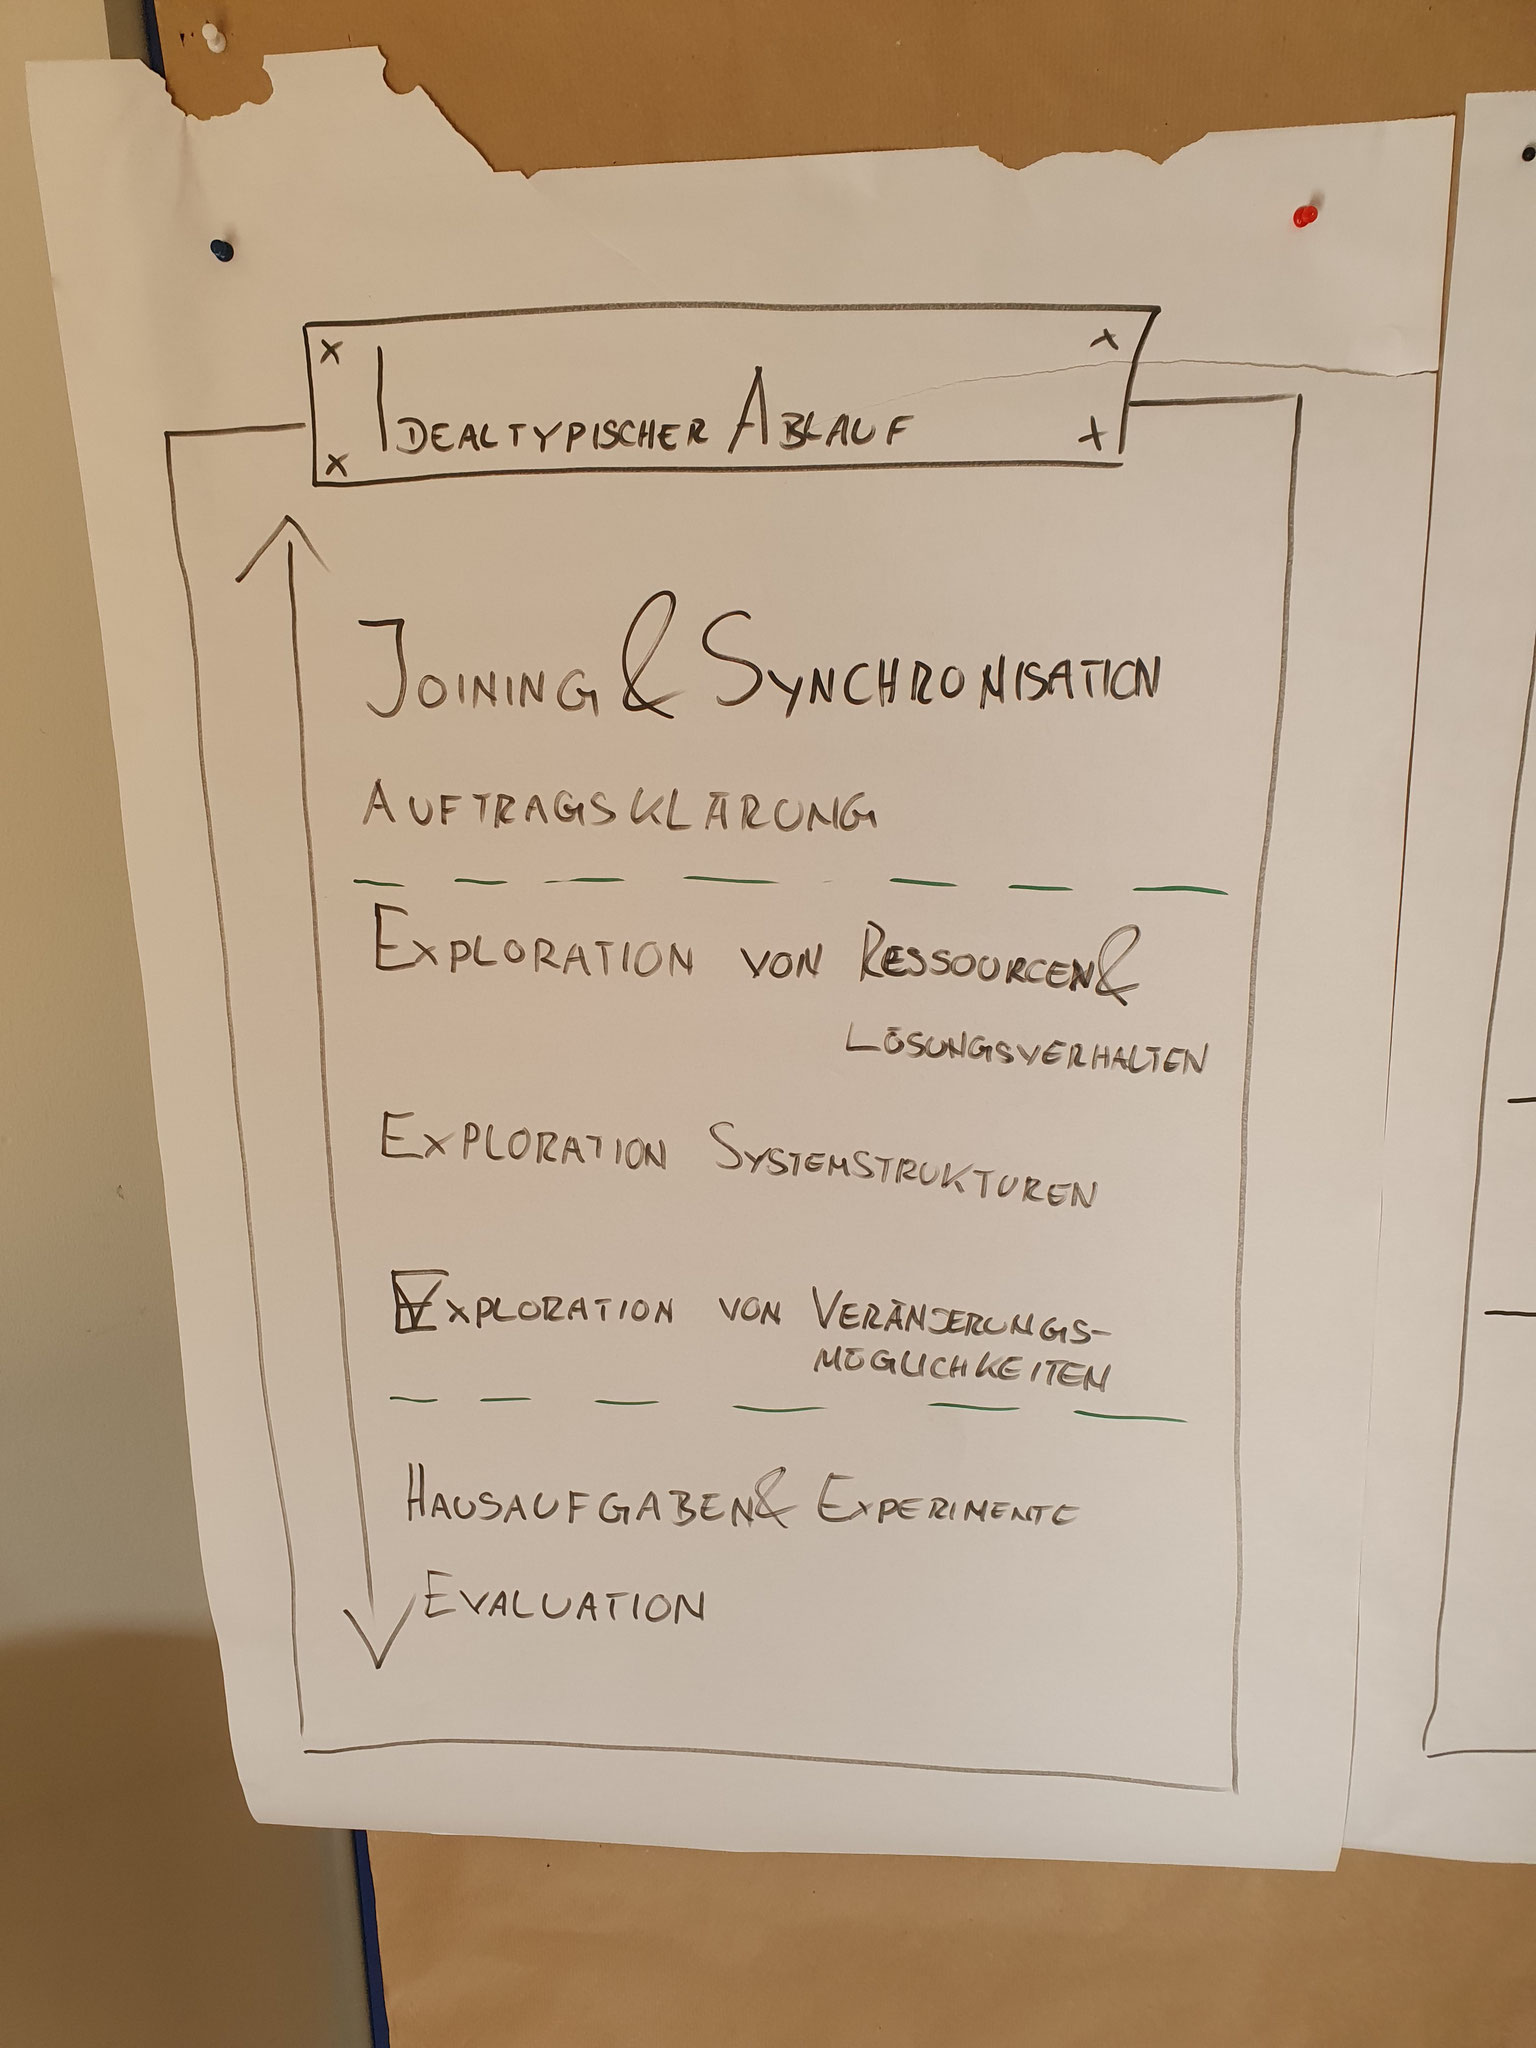 Idealtypischer Ablauf
Joining & Synchronisation
Auftragsklärung
Exploration von Ressourcen &
Lösungsverhalten
Exploration Systemstrukturen
Exploration von Veränderungs-
möglichkeiten
Hausaufgaben & Experimente
Evaluation